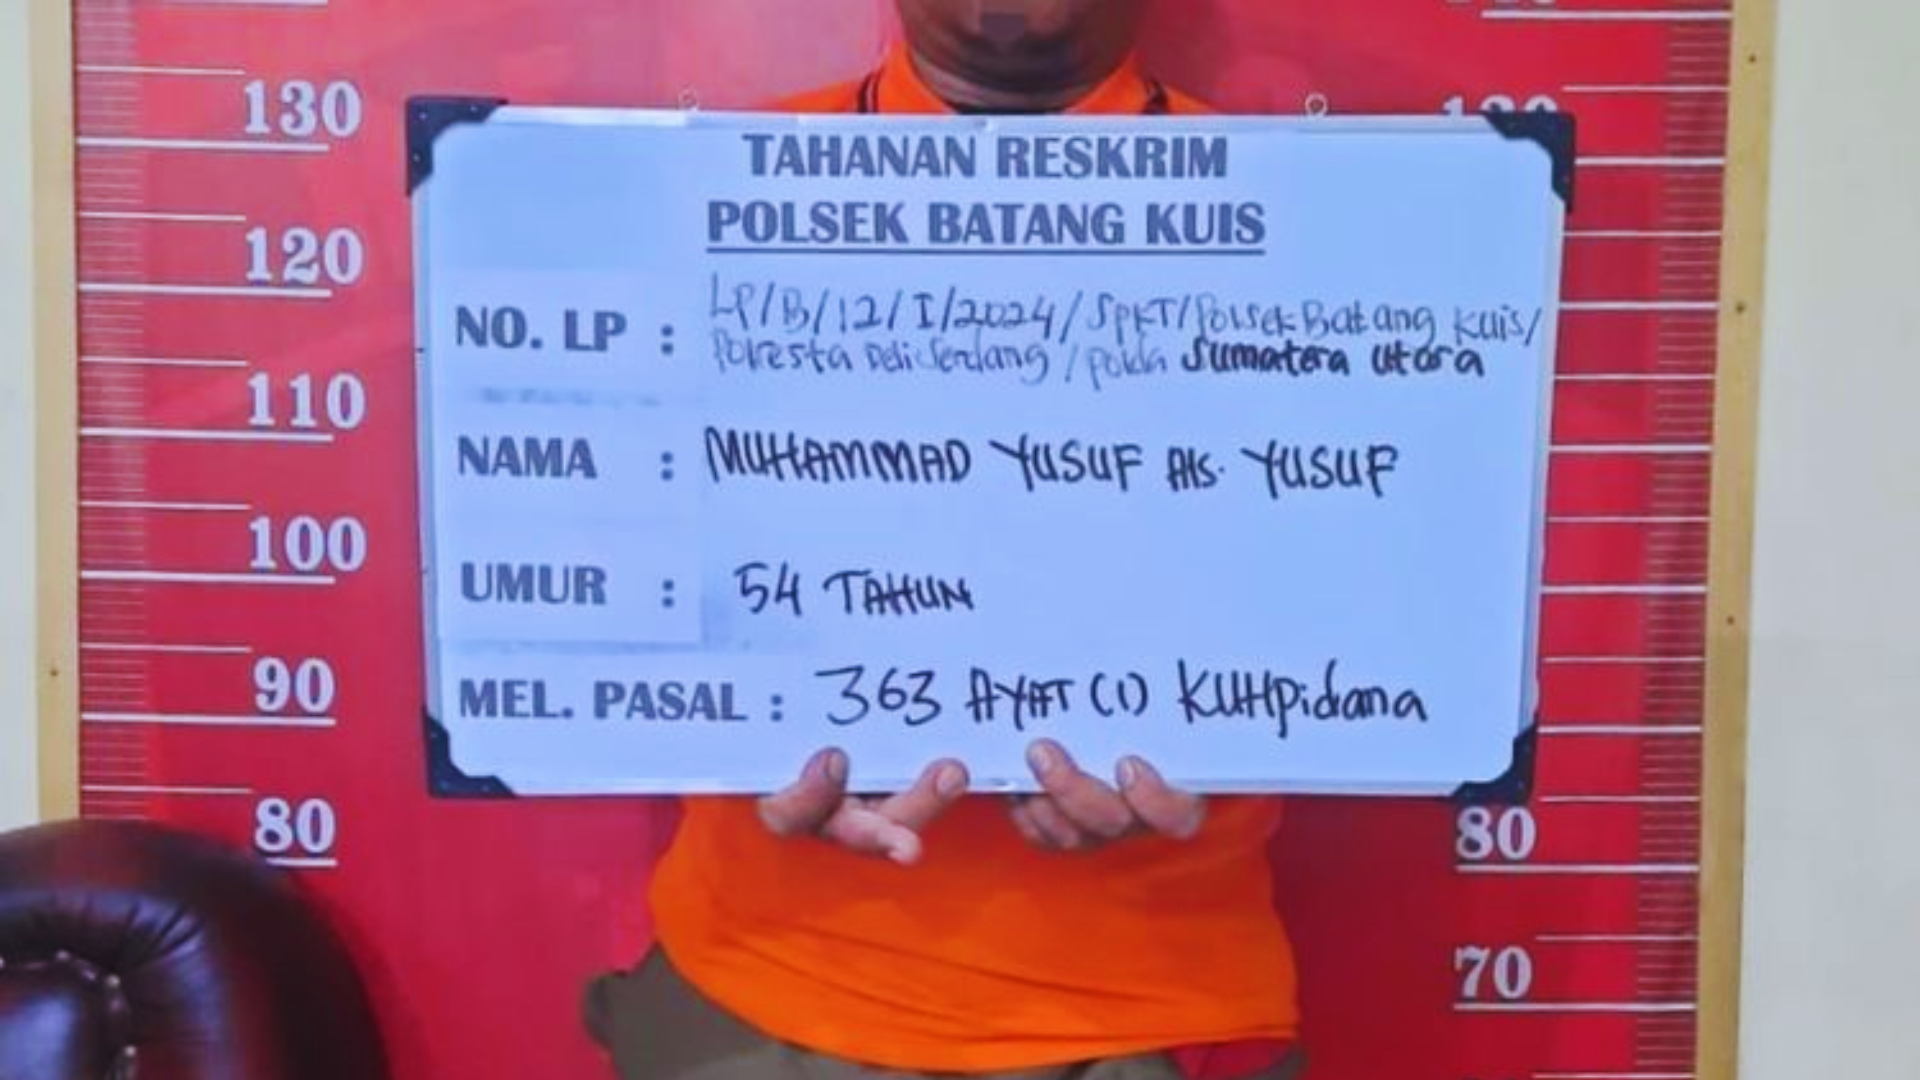 130
120
110
100
90
80
130
80
70
TAHANAN RESKRIM
POLSEK BATANG KUIS
NO. LP : LP/B/12/I/2024/SPKT/Polsek Batang Kuis/
Polresta Deli Serdang / Polda Sumatera Utara
NAMA : MUHAMMAD YUSUF Als. YUSUF
UMUR : 54 TAHUN
MEL. PASAL : 363 AYAT (1) KUHPidana